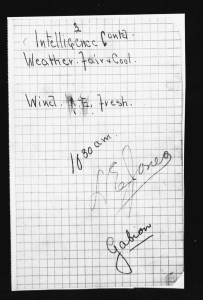 3
Intelligence Contd
Weather. Fair & Cool.
Wind. Fresh.
10 30 am.
Jones
Gabion